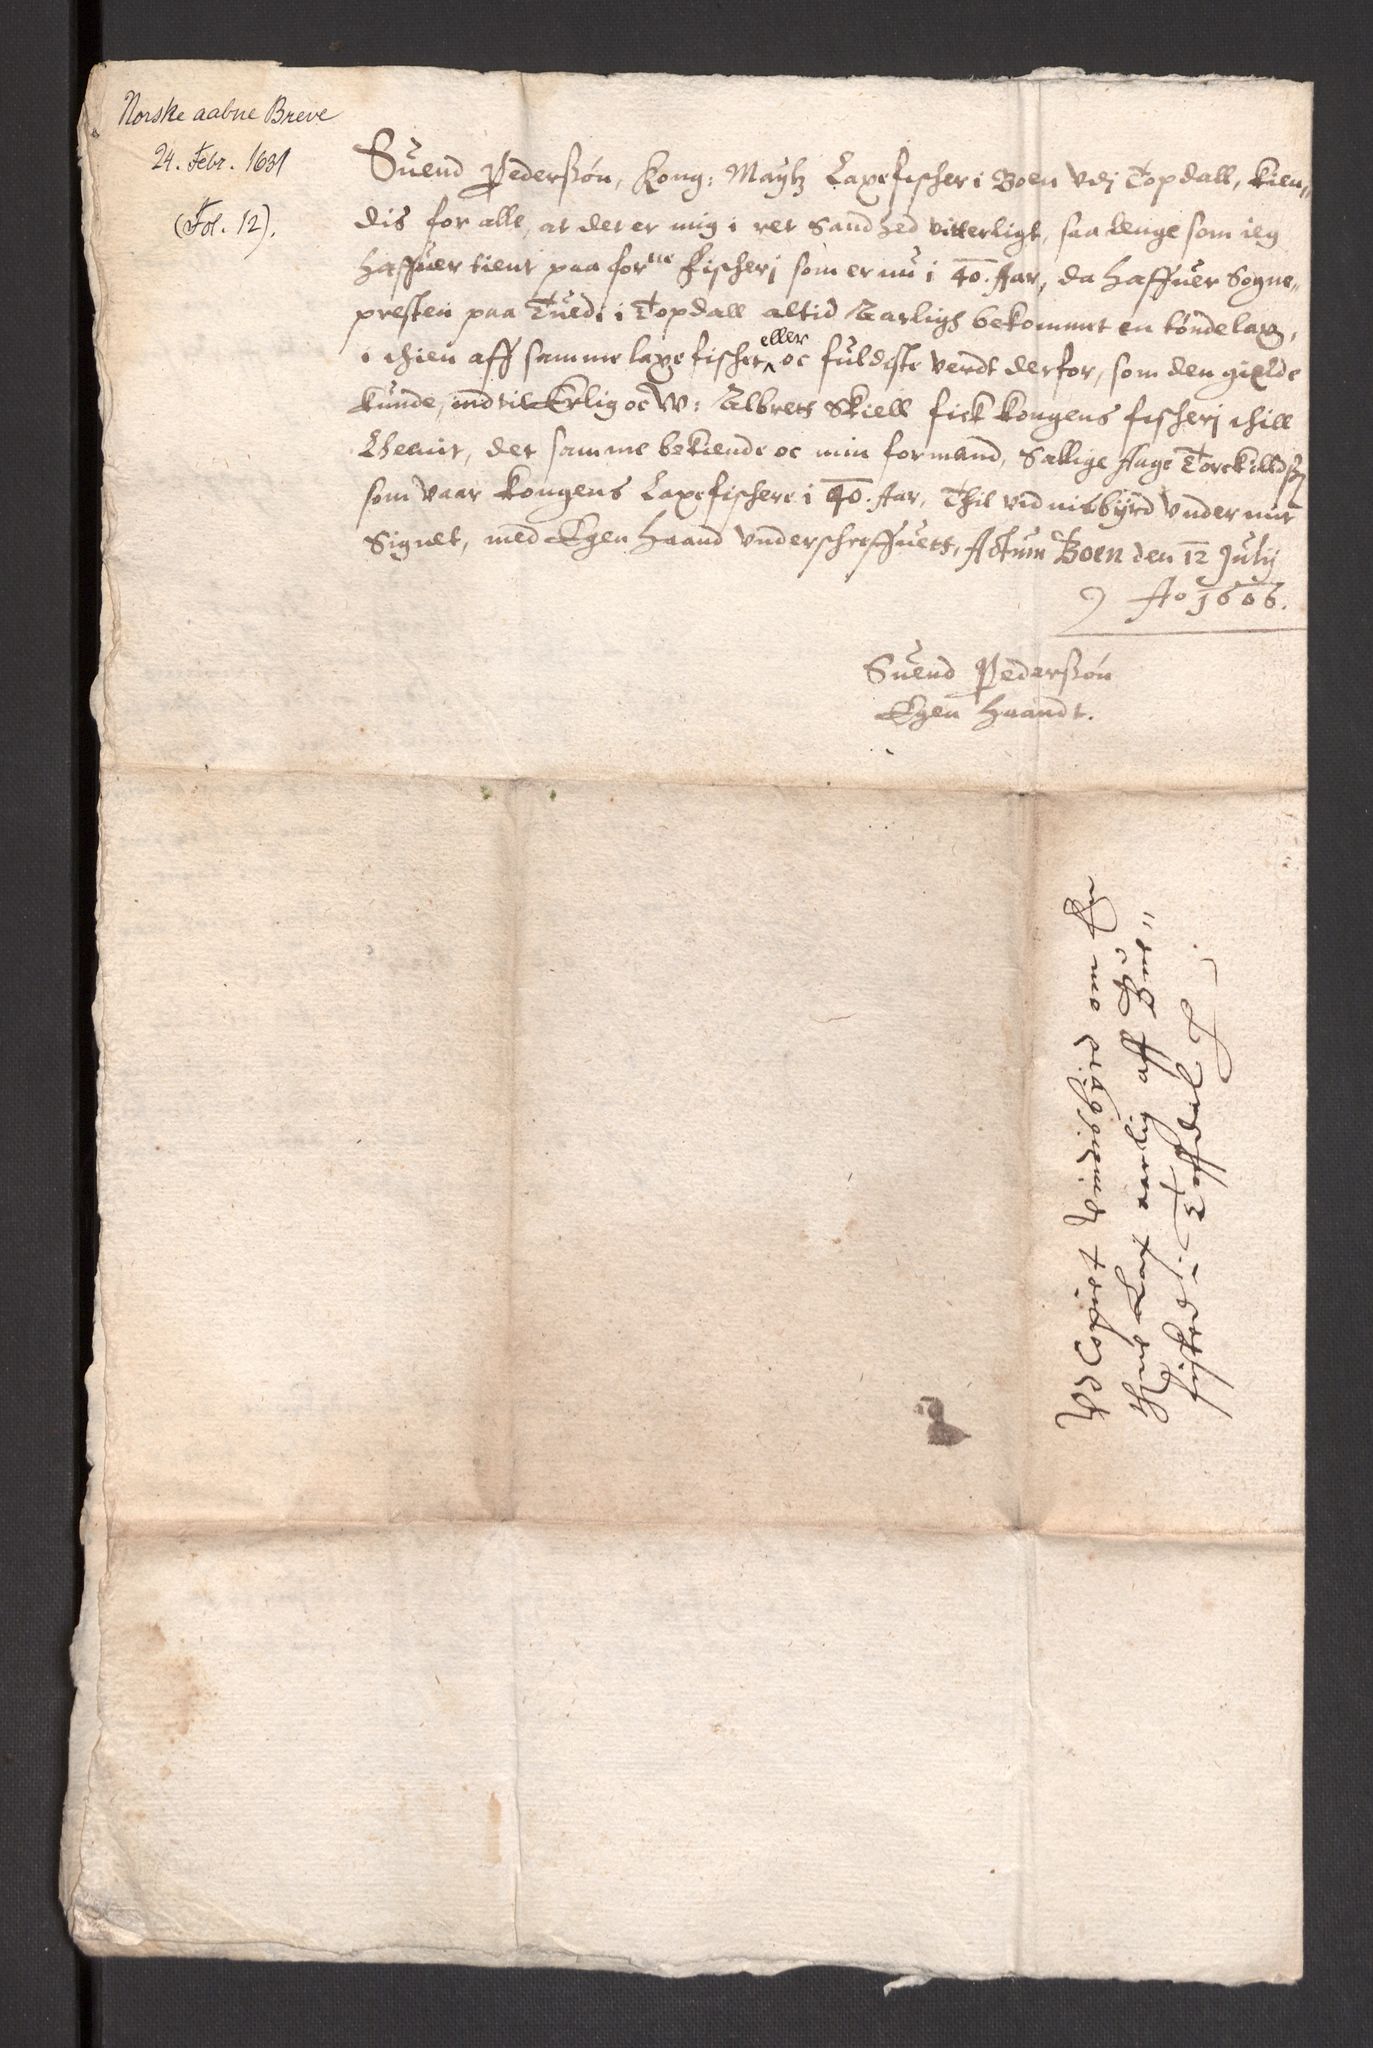 Norske aabne Breve
24. Febr. 1631
(Fol. 12).
Suend Pederssøn, Kong: Maytz Laxefischer i Boen vdj Topdall, kien„
dis for alle, at det er mig i ret Sandhed vitterligt, saa lenge som ieg
haffuer tient paa forne fischerj som er nu i 40. Aar, da haffuer Sogne„
presten paa Tued i Topdall altid Aarligs bekommet en tønde lax,
i thien aff samme laxefischer eller oc fuldeste verdt derfor, som den gielde
kunde, indtil Erlig oc W: Albrets Skiell fick kongens fischerj thill
Lheenit, det samme bekiende oc min formand, Sallige Aage Torckilds
som vaar kongens Laxefischere i 40. Aar, Thil vidnisbyrd vnder mit
Signet, med Egen haand vnderschreffuett, Actum Boen den 12 July
Ao 1606.
Suend Pederssøn
Egen haandt.
Et besigtet vindisbyrd om En
thønde Lax aarlig aff Boe„
fiskerj i Topdal